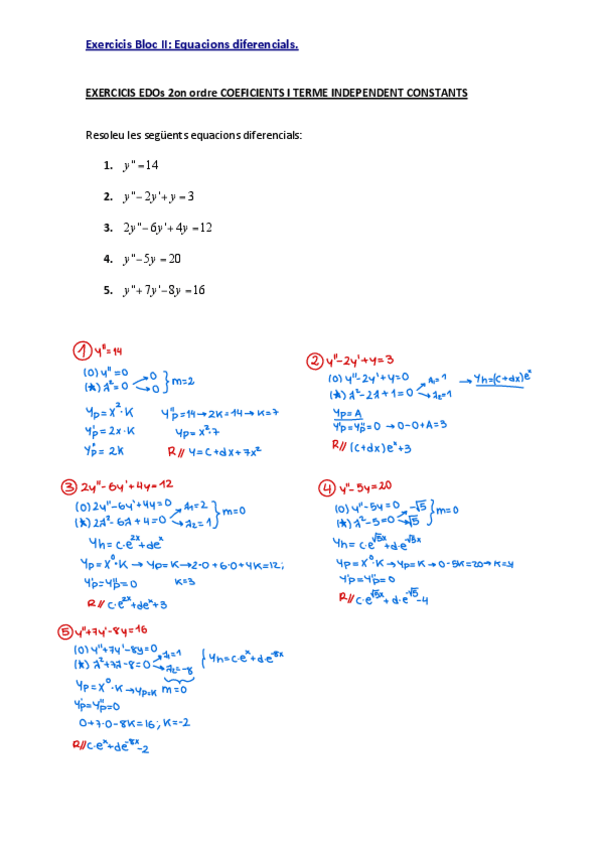 Exercicis Bloc II: Equacions diferencials.
EXERCICIS EDOs 2on ordre COEFICIENTS I TERME INDEPENDENT CONSTANTS
Resoleu les següents equacions diferencials:
1. y''=14
2. y''−2y'+y=3
3. 2y''−6y'+4y=12
4. y''−5y=20
5. y''+7y'−8y=16
① y''=14
(0) y''=0
(*) λ²=0 → 0 → 0 } m=2
yp=x²·K
y'p=2x·K
y''p=2K
y''p=14→2K=14→K=7
yp=x²·7
R// y=c+dx+7x²
② y''−2y'+y=3
(0) y''−2y'+y=0
(*) λ²−2λ+1=0 λ1=1 λ2=1 → yh=(c+dx)eˣ
yp=A
y'p=y''p=0 → 0−0+A=3
R// (c+dx)eˣ+3
③ 2y''−6y'+4y=12
(0) 2y''−6y'+4y=0
(*) 2λ²−6λ+4=0 λ1=2 λ2=1 } m=0
yh=c·e²ˣ+deˣ
yp=x⁰·K → yp=K→2·0+6·0+4K=12;
y'p=y''p=0 K=3
R// c·e²ˣ+deˣ+3
④ y''−5y=20
(0) y''−5y=0
(*) λ²−5=0 −√5 √5 } m=0
yh=c·e^√5x+d·e^-√5x
yp=x⁰·K→yp=K→0−5K=20→K=4
y'p=y''p=0
R// c·e^√5x+d·e^-√5−4
⑤ y''+7y'−8y=16
(0) y''+7y'−8y=0
(*) λ²+7λ−8=0 λ1=1 λ2=−8 { yh=c·eˣ+d·e^-8x
yp=x⁰·K→yp=K m=0
y'p=y''p=0
0+7·0−8K=16; K=−2
R// c·eˣ+de^-8x−2